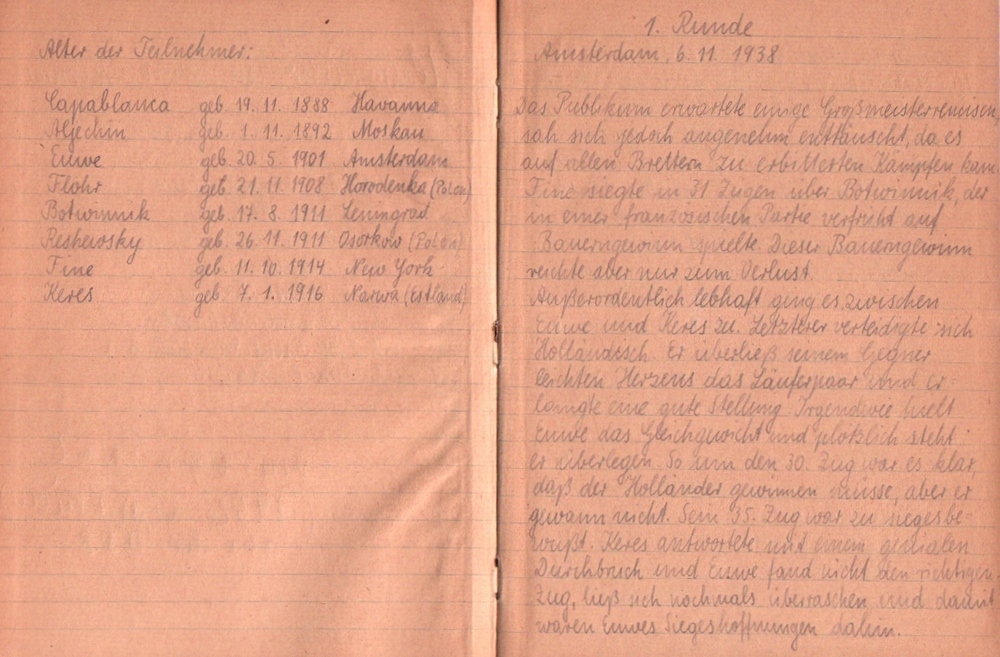 Alter der Teilnehmer:
Capablanca geb. 19. 11. 1888 Havanna
Aljechin geb. 1. 11. 1892 Moskau
Euwe geb. 20. 5. 1901 Amsterdam
Flohr geb. 21. 11. 1908 Horodenka (Polen)
Botwinnik geb. 17. 8. 1911 Leningrad
Reshewsky geb. 26. 11. 1911 Osorkow (Polen)
Fine geb. 11. 10. 1914 New York
Keres geb. 7. 1. 1916 Narwa (Estland)
1. Runde
Amsterdam, 6. 11. 1938
Das Publikum erwartete einige Großmeisterremisen,
sah sich jedoch angenehm enttäuscht, da es
auf allen Brettern zu erbitterten Kämpfen kam.
Fine siegte in 31 Zügen über Botwinnik, der
in einer französischen Partie verfrüht auf
Bauerngewinn spielte. Dieser Bauerngewinn
reichte aber nur zum Verlust.
Außerordentlich lebhaft ging es zwischen
Euwe und Keres zu. Letzterer verteidigte sich
Holländisch. Er überließ seinem Gegner
leichten Herzens das Läuferpaar und er-
langte eine gute Stellung. Irgendwie hielt
Euwe das Gleichgewicht und plötzlich steht
er überlegen. So um den 30. Zug war es klar,
daß der Holländer gewinnen müsse, aber er
gewann nicht. Sein 35. Zug war zu siegesbe-
wußt. Keres antwortete mit einem genialen
Durchbruch und Euwe fand nicht den richtigen
Zug, ließ sich nochmals überraschen und damit
waren Euwes Siegeshoffnungen dahin.